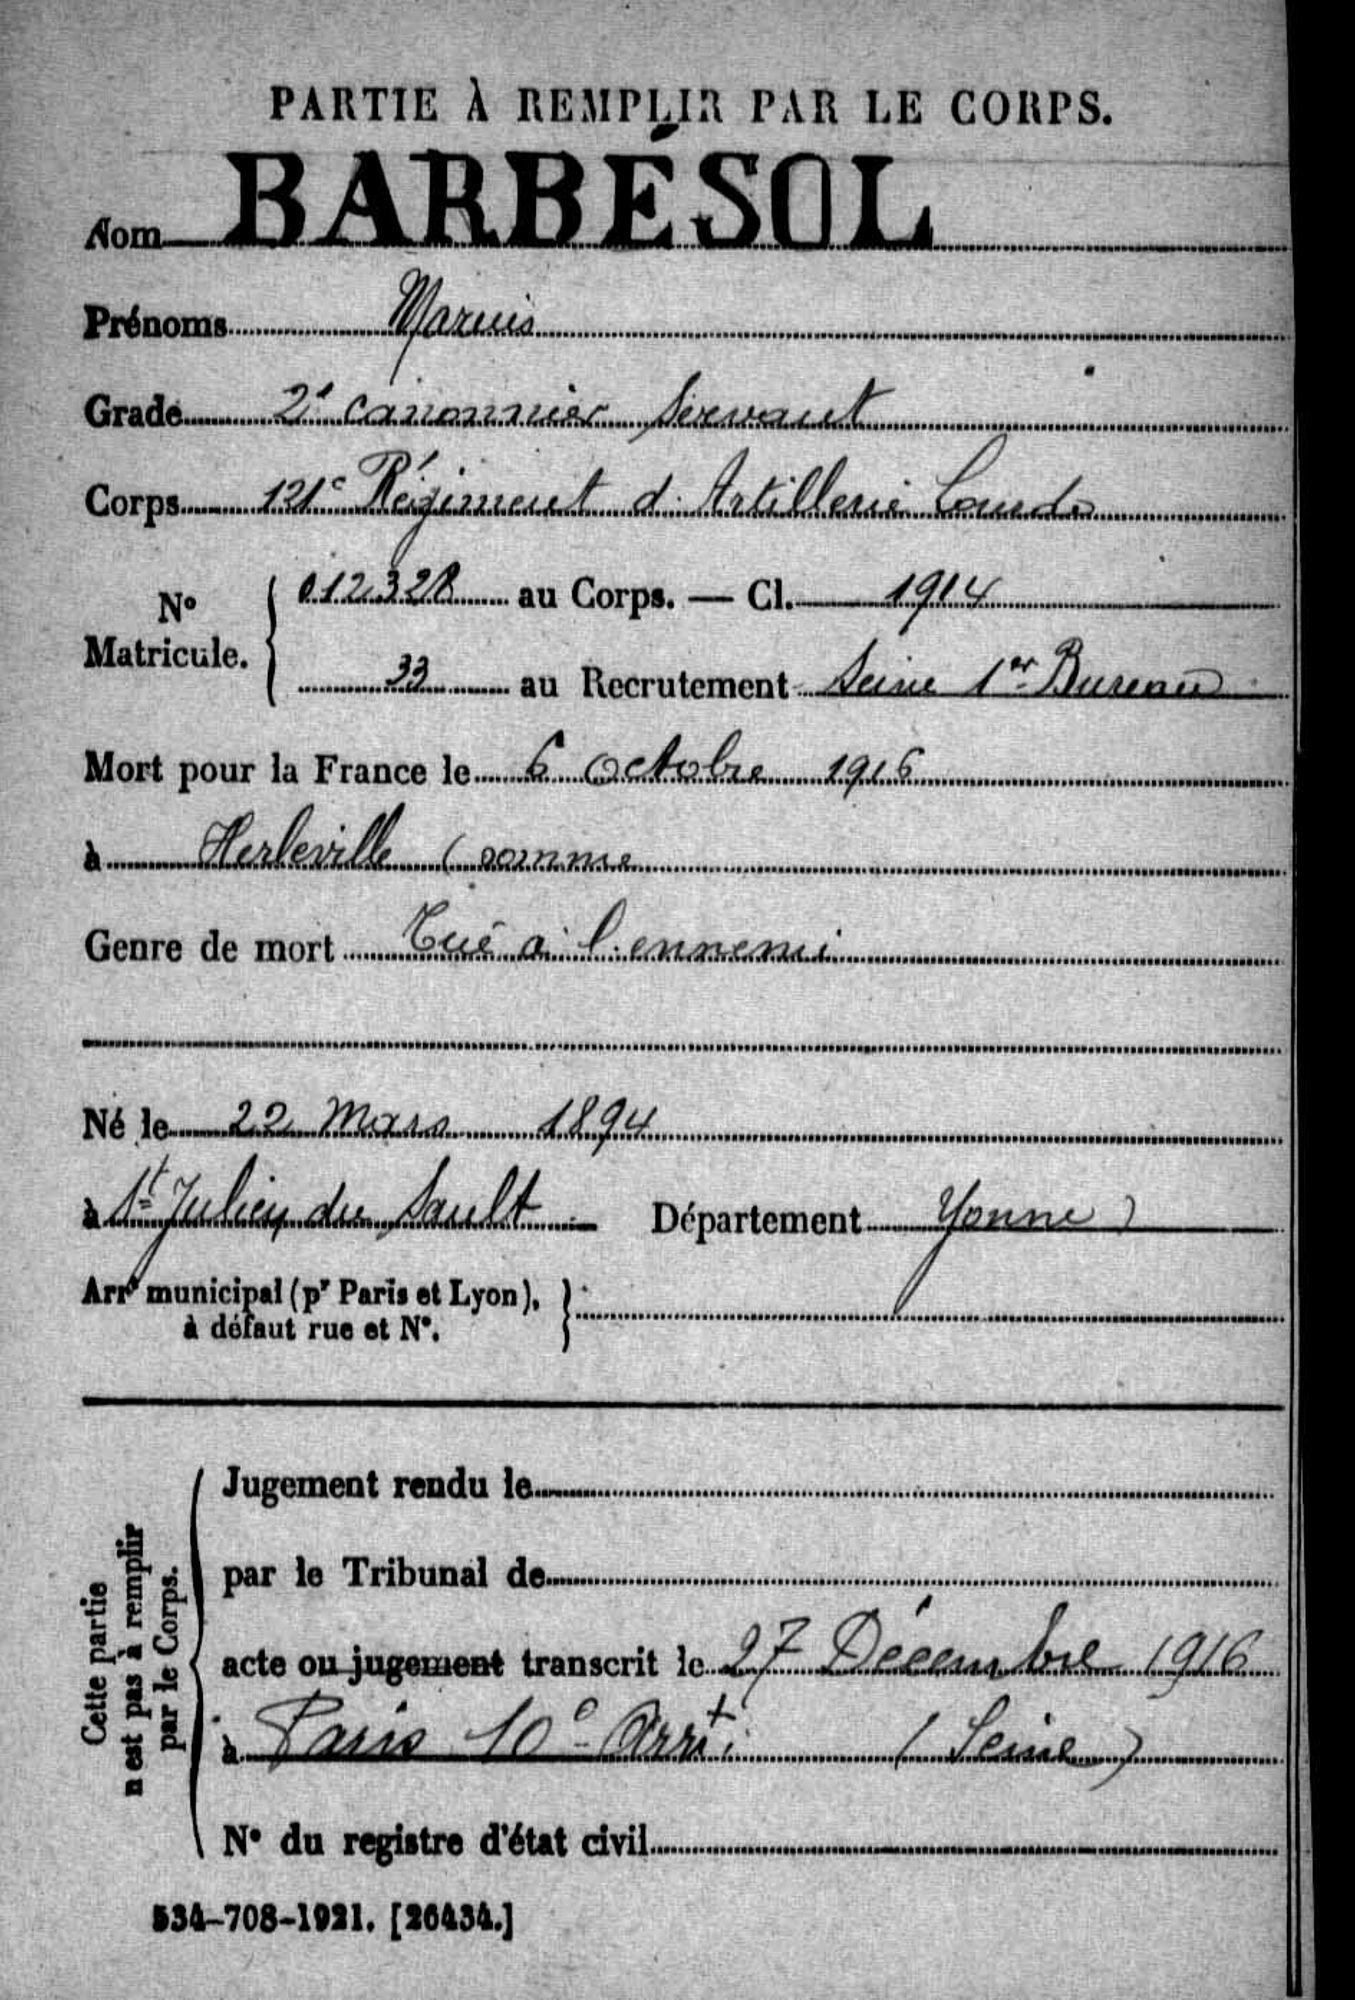 PARTIE À REMPLIR PAR LE CORPS.
Nom BARBÉSOL
Prénoms Marius
Grade 2e Canonnier Servant
Corps 121e Régiment d'Artillerie Lourde
No Matricule. { 012328 au Corps. — Cl. 1914
33 au Recrutement Seine 1er Bureau
Mort pour la France le 6 Octobre 1916
à Herleville (somme
Genre de mort Tué à l'ennemi
Né le 22 Mars 1894
à St Julien du Sault Département Yonne)
Arrt municipal (pr Paris et Lyon), }
à défaut rue et N°.
Cette partie
n'est pas à remplir
par le Corps.
Jugement rendu le
par le Tribunal de
acte ou jugement transcrit le 27 Décembre 1916
à Paris 10e Arrt. (Seine)
N° du registre d'état civil
534-708-1921. [26434.]